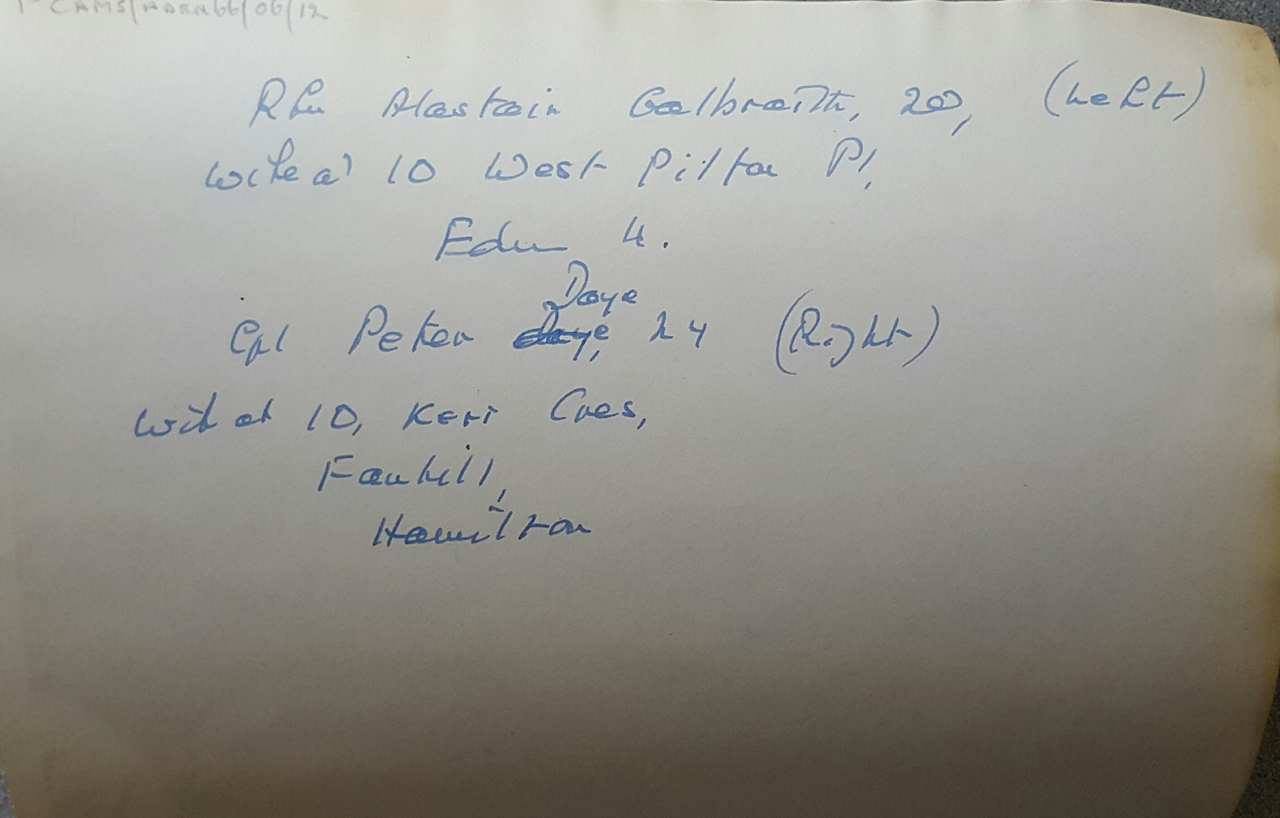 Rfn Alastair Galbraith, 20, (Left)
wife at 10 West Pilton Pl,
Edin 4.
Daye
Cpl Peter Daye, 24 (Right)
wif at 10, Kerr Cres,
Fairhill,
Hamilton